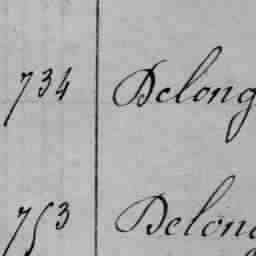 734 Delong
753 Delong